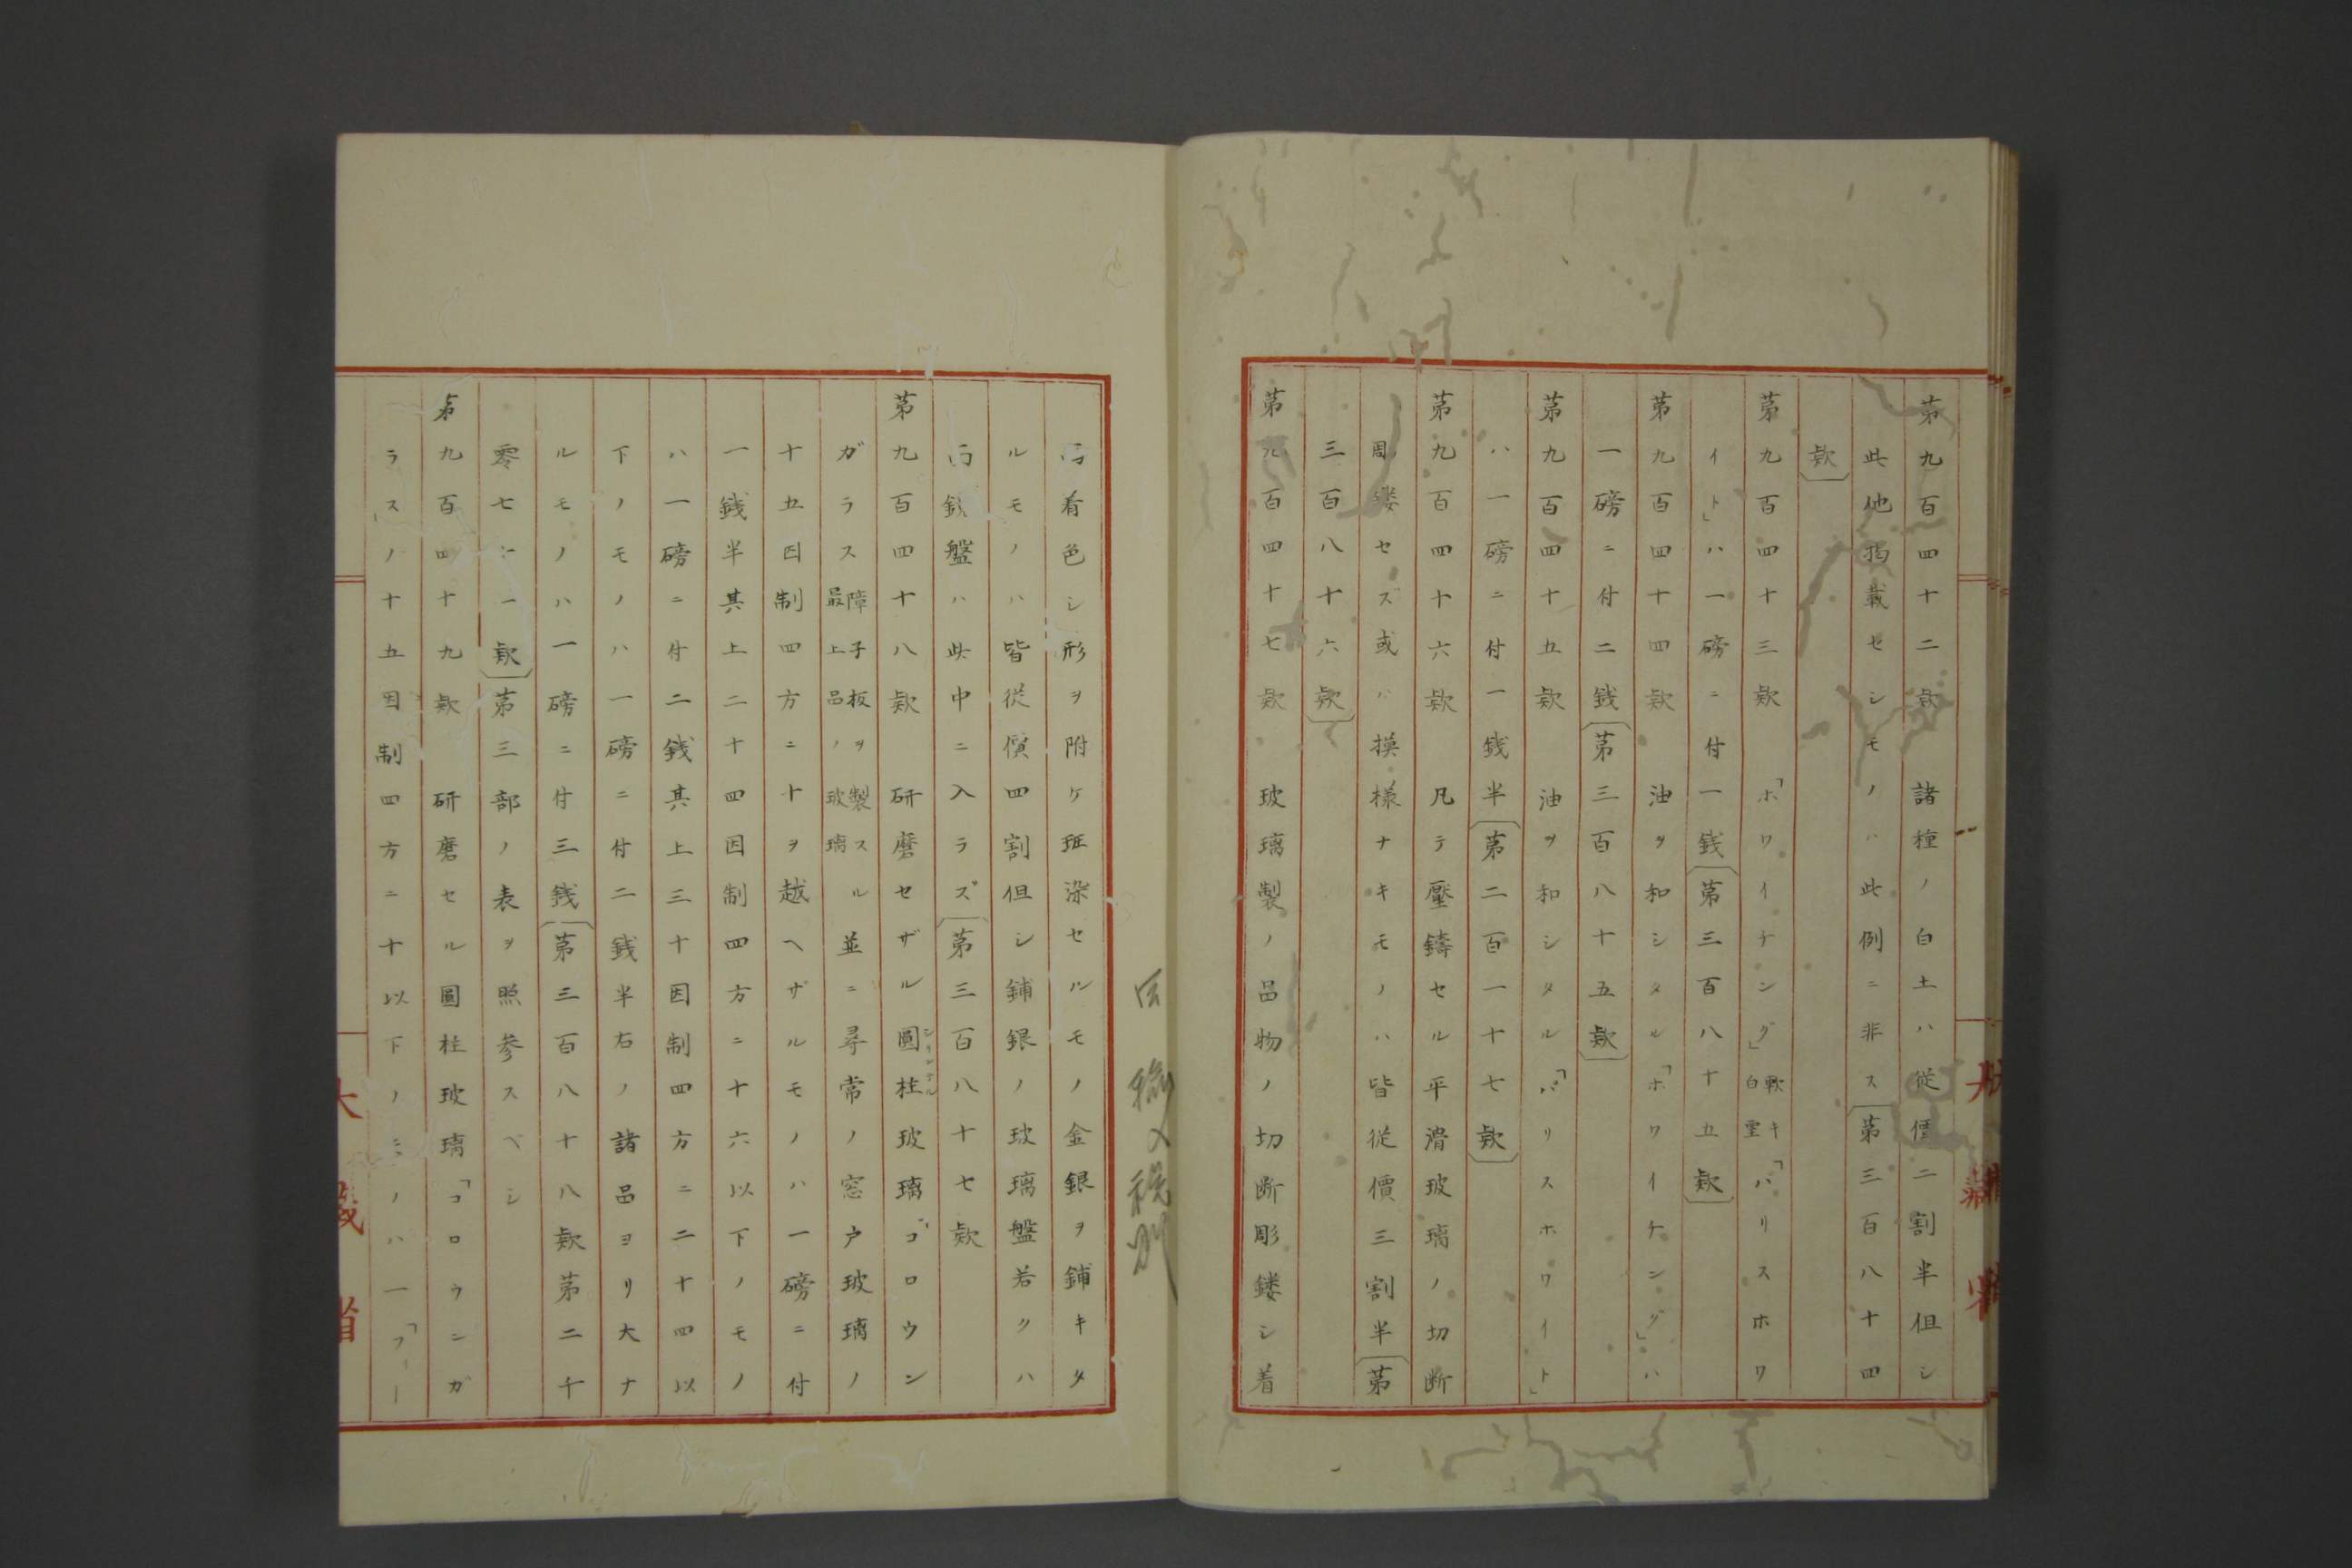 第九百四十二款　諸種ノ白土ハ従價二割半但シ
此他掲載セシモノハ此例ニ非ス〔第三百八十四
款〕
第九百四十三款　「ホワイチング」軟キ白堊「パリスホワ
イト」ハ一磅ニ付一銭〔第三百八十五款〕
第九百四十四款　油ヲ和シタル「ホワイチング」ハ
一磅ニ付二銭〔第三百八十五款〕
第九百四十五款　油ヲ和シタル「パリスホワイト」
ハ一磅ニ付一銭半〔第二百一十七款〕
第九百四十六款　凡テ壓鑄セル平滑玻璃ノ切断
周鏤セズ或ハ摸様ナキモノハ皆従價三割半〔第
三百八十六款〕
第九百四十七款　玻璃製ノ品物ノ切断彫鏤シ着
着色シ形ヲ附ケ斑染セルモノ金銀ヲ鋪キタ
ルモノハ皆従價四割但シ鋪銀ノ玻璃盤若クハ
銭盤ハ此中ニ入ラズ〔第三百八十七款
第九百四十八款　研磨セザル圓柱玻璃「コロウン
シリンデル
ガラス障子板ヲ製スル最上品ノ玻璃並ニ尋常ノ窓戸玻璃ノ
十五因制四方ニ十ヲ越ヘザルモノハ一磅ニ付
一銭半其上二十四因制四方ニ十六以下ノモノ
ハ一磅ニ付二銭其上三十因制四方ニ二十四以
下ノモノハ一磅ニ付二銭半右ノ諸品ヨリ大ナ
ルモノハ一磅ニ付三銭〔第三百八十八款第二千
零七十一款〕第三部ノ表ヲ照参スベシ
第九百四十九款　研磨セル圓柱玻璃「コロウンガ
ラスノ十五因制四方ニ十以下ノモノハ一「フー
大蔵省